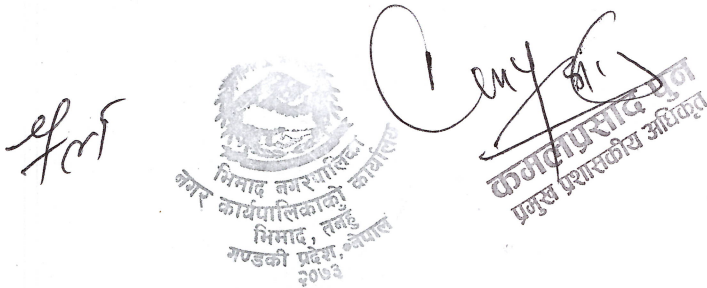 भिमाद नगरपालिका
नगर कार्यपालिकाको कार्यालय
भिमाद, तनहुँ
गण्डकी प्रदेश, नेपाल
२०७३
कमलाप्रसाद पुन
प्रमुख प्रशासकीय अधिकृत